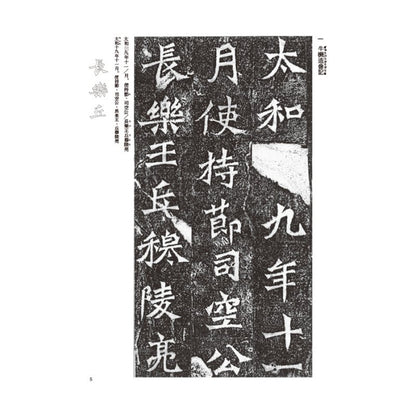 一 牛橛造像記
太和 九年十一
月使持節司空公
長樂王丘穆陵亮
長樂丘